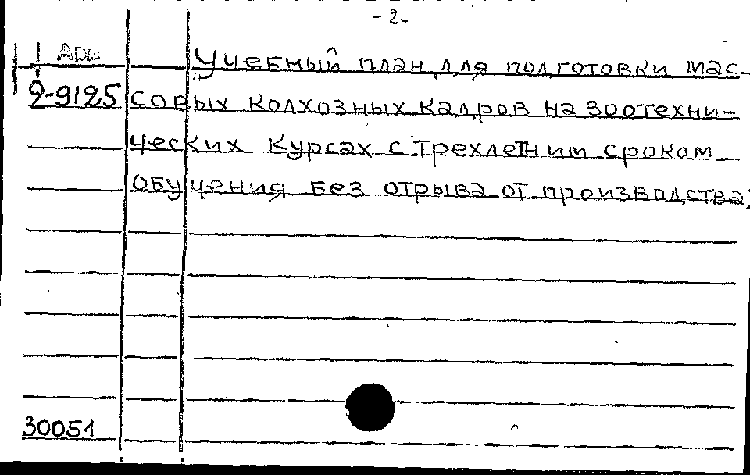 -2-
Учебный план для подготовки мас-
2-9125 совых колхозных кадров на зоотехни-
ческих курсах с трехлетним сроком
обучения без отрыва от производства,
30051